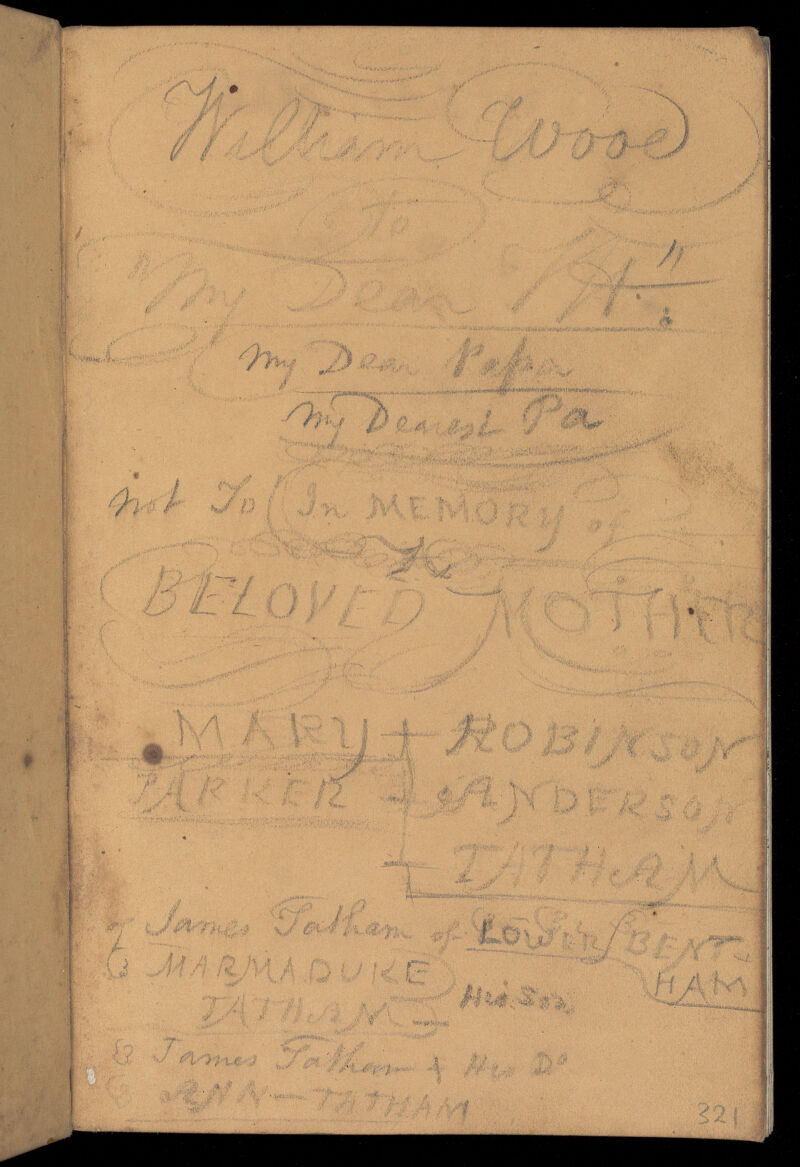 William Wood
to
"My Dear "H."
My Dear Papa
My Dearest Pa
not To In MEMORY of
BELOVED MOTHER
MARY + ROBINSON
PARKER - & ANDERSON
- TATHAM
of James Tatham of LOWER BENT-
& MARMADUKE HAM
TATHAM - His Son
& James Tatham & His Do
& ANN - TATHAM
321